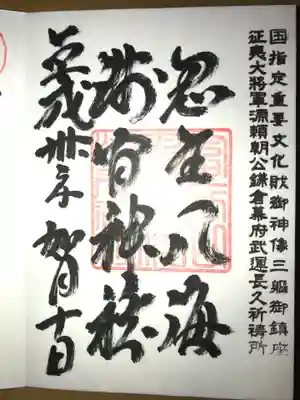 国指定重要文化財御神像三軀御鎮座
征夷大將軍源頼朝公鎌倉幕府武運長久祈禱所
忍野八海
浅間神社
平成卅年 如月十日